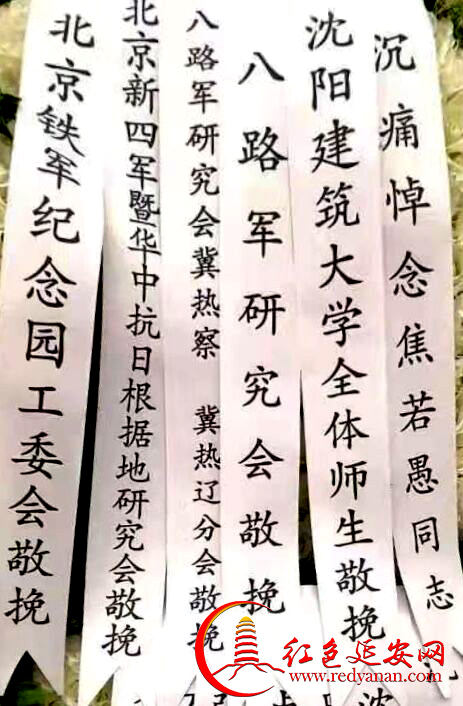 沉痛悼念焦若愚同志
沈阳建筑大学全体师生敬挽
八路军研究会敬挽
八路军研究会冀热察 冀热辽分会敬挽
北京新四军暨华中抗日根据地研究会敬挽
北京铁军纪念园工委会敬挽
红色延安网
www.redyanan.com